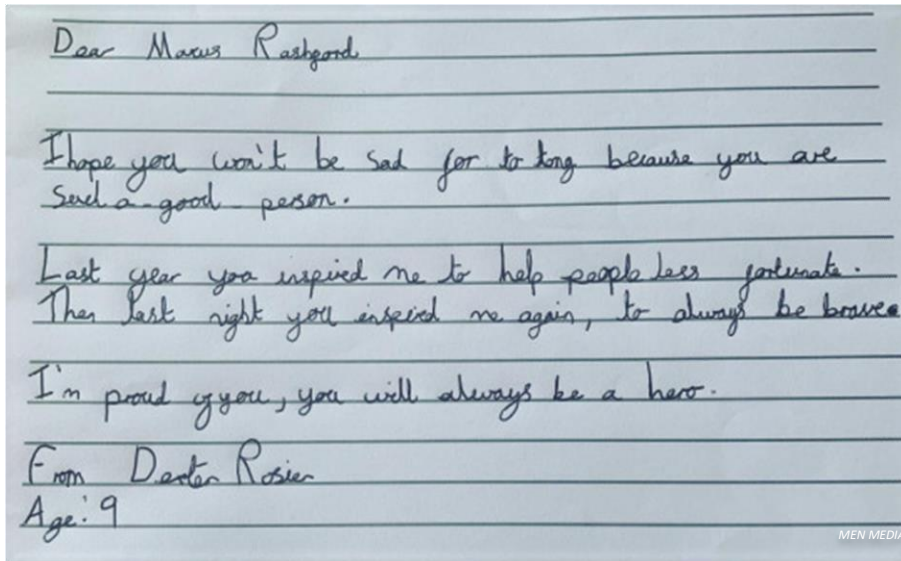 Dear Marcus Rashford
I hope you won't be sad for to long because you are
such a good person.
Last year you inspired me to help people less fortunate.
Then last night you inspired me again, to always be brave.
I'm proud of you, you will always be a hero.
From Dexter Rosier
Age: 9
MEN MEDIA